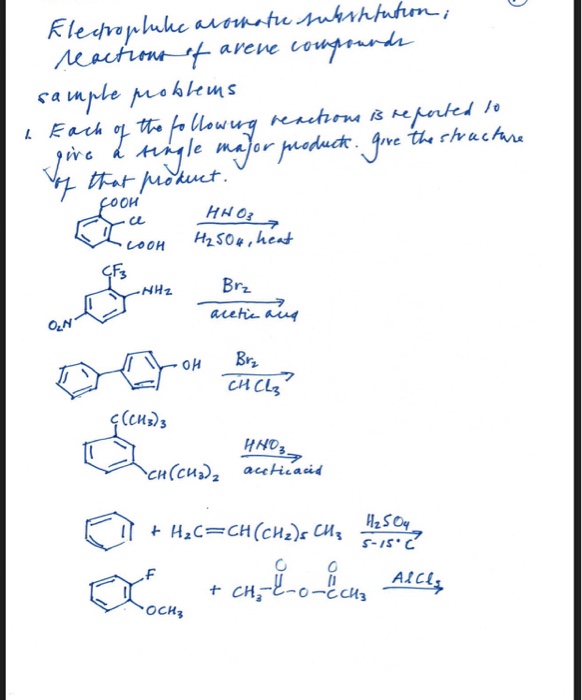 Electrophilic aromatic substitution;
reactions of arene compounds
sample problems
1. Each of the following reactions is reported to
give a single major product. Give the structure
of that product.
COOH
Cl
COOH
HNO3
H2SO4, heat
CF3
NH2
O2N
Br2
acetic acid
OH
Br2
CHCl3
C(CH3)3
CH(CH3)2
HNO3
acetic acid
+ H2C=CH(CH2)5 CH3
H2SO4
5-15°C
F
OCH3
+ CH3-C-O-CCH3
O O
AlCl3